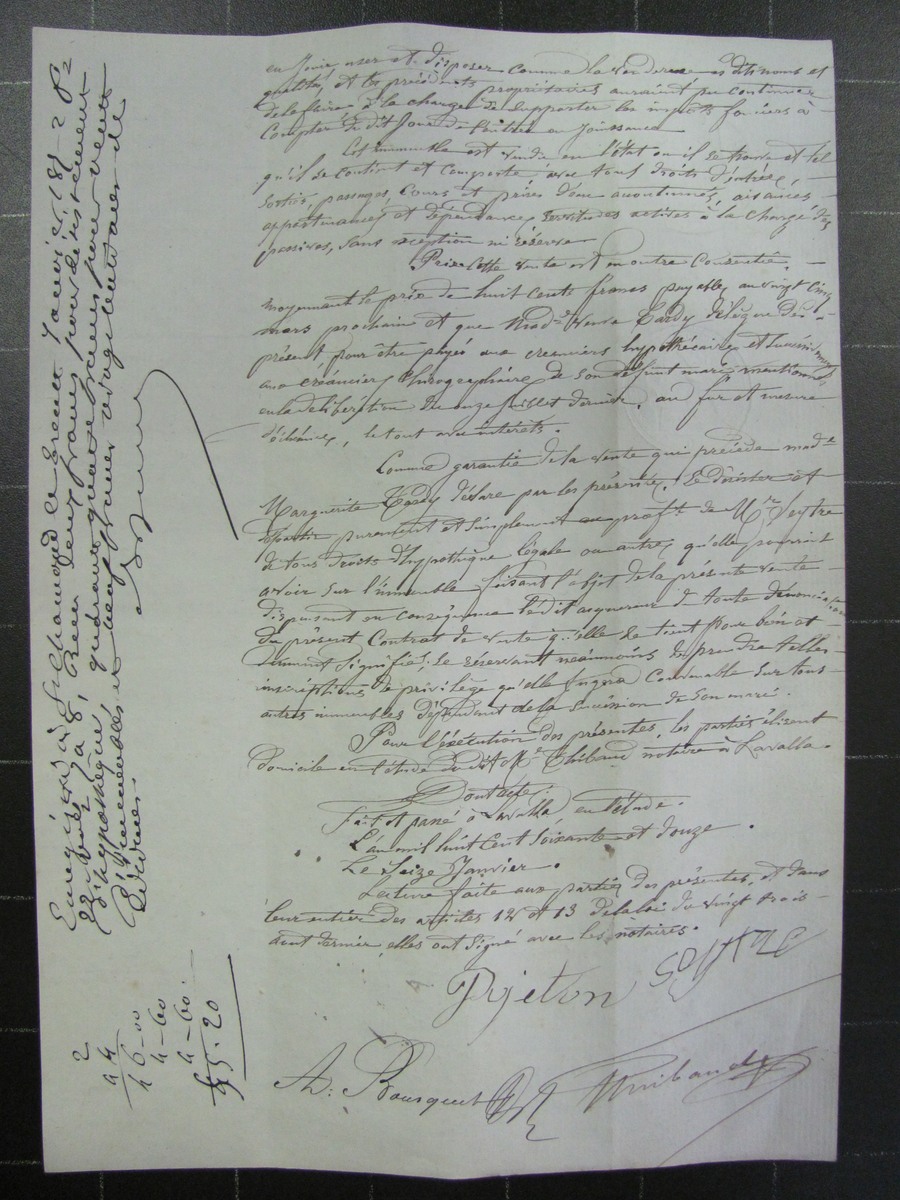 en Jouir user et disposer comme la venderesse ès dits noms et
qualités et les précédents propriétaires auraient pu continuer
de le faire à la charge de supporter les impôts fonciers à
Compter du dit Jour de l'entrée en Jouissance
Cet immeuble est vendu en l'état où il se trouve et tel
qu'il se contient et comporte avec tous droits d'entrées,
Sorties, passages, Cours et prises d'eau accoutumés, aisances
appartenances et dépendances, servitudes actives à la charge des
passives, sans exception ni réserve
Prix Cette vente est en outre Consentie
moyennant le prix de huit cents francs payable au vingt cinq
mars prochain et que Mad.e Veuve Tardy délègue dès à
présent pour être payés aux créanciers hypothécaires et
aux créanciers Chirographaires de son défunt mari mentionnés
en la délibération du onze Juillet dernier, au fur et mesure
d'échéances, le tout avec intérêts.
Comme garantie de la vente qui précède mad.e
Marguerite Tardy déclare par les présentes, Se désister et
départir purement et simplement au profit de Mr Seytre
à tous droits d'hypothèque légale ou autres qu'elle pourrait
avoir sur l'immeuble faisant l'objet de la présente vente
dispensant en conséquence le dit acquéreur de toute dénonciation
du présent Contrat de vente qu'elle se tient pour bien et
dûment Signifié; se réservant néanmoins de prendre telles
inscriptions de privilège qu'elle Jugera Convenable sur tous
autres immeubles dépendant de la Succession de Son mari.
Pour l'exécution des présentes, les parties élisent
Domicile en l'étude du dit Me Thibaud notaire à Lavalla.
Dont acte:
Fait et passé à Lavalla, en l'étude.
L'an mil huit Cent Soixante et douze.
Le Seize Janvier.
Lecture faite aux parties des présentes, et dans
leur entier des articles 12 et 13 de la loi du vingt trois
août dernier, elles ont Signé avec les notaires.
Pijeton Seytre
A. Bousquet Thibaud
Enregistré à St Chamond le Janvier 1872 Fo
22 Vo Ca 8, Reçu deux francs pour désistement
d'hypothèque, quarante quatre francs pour vente
d'immeubles et
Décimes
2
44
46-00
4-60
4-60
55.20